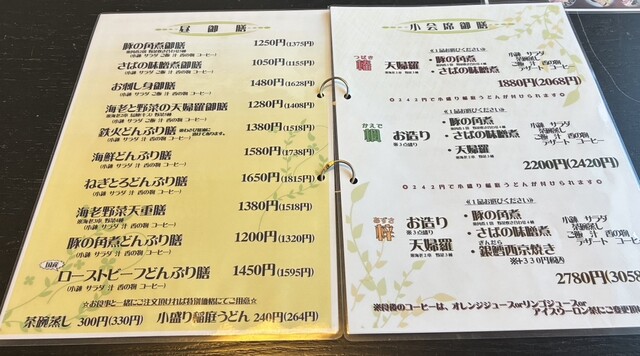 昼御膳
豚の角煮御膳 1250円(1375円)
(小鉢 サラダ ご飯 汁 香の物 コーヒー)
さばの味噌煮御膳 1050円(1155円)
(小鉢 サラダ ご飯 汁 香の物 コーヒー)
お刺し身御膳 1480円(1628円)
(小鉢 サラダ ご飯 汁 香の物 コーヒー)
海老と野菜の天婦羅御膳 1280円(1408円)
(小鉢 サラダ ご飯 汁 香の物 コーヒー)
鉄火どんぶり膳 1380円(1518円)
(小鉢 サラダ 汁 香の物 コーヒー)
海鮮どんぶり膳 1580円(1738円)
(小鉢 サラダ 汁 香の物 コーヒー)
ねぎとろどんぶり膳 1650円(1815円)
(小鉢 サラダ 汁 香の物 コーヒー)
海老野菜天重膳 1380円(1518円)
(小鉢 サラダ 汁 香の物 コーヒー)
豚の角煮どんぶり膳 1200円(1320円)
(小鉢 サラダ 汁 香の物 コーヒー)
国産
ローストビーフどんぶり膳 1450円(1595円)
(小鉢 サラダ 汁 香の物 コーヒー)
☆お食事と一緒にご注文頂ければ特別価格にてご用意☆
茶碗蒸し 300円(330円) 小盛り稲庭うどん 240円(264円)
小会席御膳
つばき
椿 天婦羅
≪1品お選びください≫
・豚の角煮
・さばの味噌煮
小鉢 サラダ
茶碗蒸し
ご飯 汁 香の物
デザート コーヒー
1880円(2068円)
✿242円で小盛り稲庭うどんが付けられます✿
かえで
お造り
≪1品お選びください≫
・豚の角煮
・さばの味噌煮
・天婦羅
小鉢 サラダ
茶碗蒸し
ご飯 汁 香の物
デザート コーヒー
2200円(2420円)
✿242円で小盛り稲庭うどんが付けられます✿
あずさ
梓 お造り
天婦羅
≪1品お選びください≫
・豚の角煮
・さばの味噌煮
ぎんだら
・銀鱈西京焼き
※+330円税込
小鉢 サラダ
茶碗蒸し
ご飯 汁 香の物
デザート コーヒー
2780円(305
※食後のコーヒーは、オレンジジュースorリンゴジュースor
アイスウーロン茶にご変更